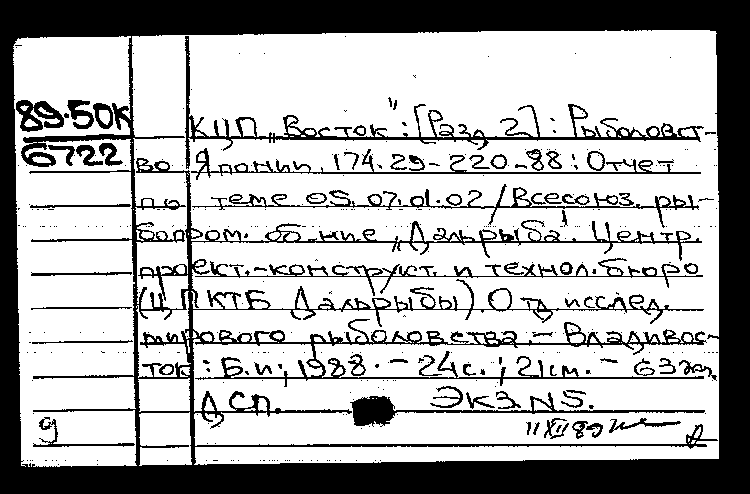 89-50К
6722
КЦП „Восток": [Разд. 2]: Рыболовст-
во Японии. 174.29-220-88: Отчет
по теме 05.07.01.02 / Всесоюз. ры-
бопром. об-ние „Дальрыба". Центр.
проект.-конструкт. и технол. бюро
(ЦПКТБ Дальрыбы). Отд. исслед.
мирового рыболовства. - Владивос-
ток: Б.и., 1988. - 24с.; 21см. - 63 экз.
ДСП. Экз. N5.
9
11 XII 89